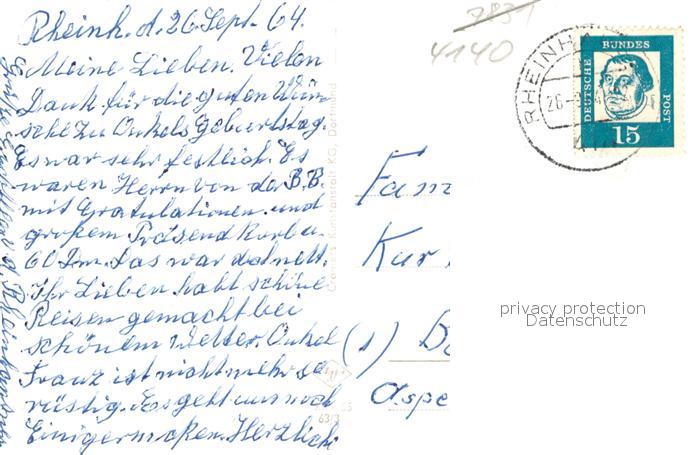 Rheinh. d. 26. Sept. 64.
Meine Lieben. Vielen
Dank für die guten Wün-
sche zu Onkels Geburtstag.
Es war sehr festlich. Es
waren Herrn von der B.B.
mit Gratulationen und
großem Präsendkorb u.
60 Dm. Das war doch nett.
Ihr Lieben habt schöne
Reisen gemacht bei
schönem Wetter. Onkel
Franz ist nicht mehr so
rüstig. Es geht uns noch
Einigermaßen. Herzliche
Grüße
7831
4140
RHEINHA
26.-9.
DEUTSCHE BUNDES POST
15
Fam
Kur
(1) D
Aspe
KG, Dortmund
63/3
privacy protection
Datenschutz